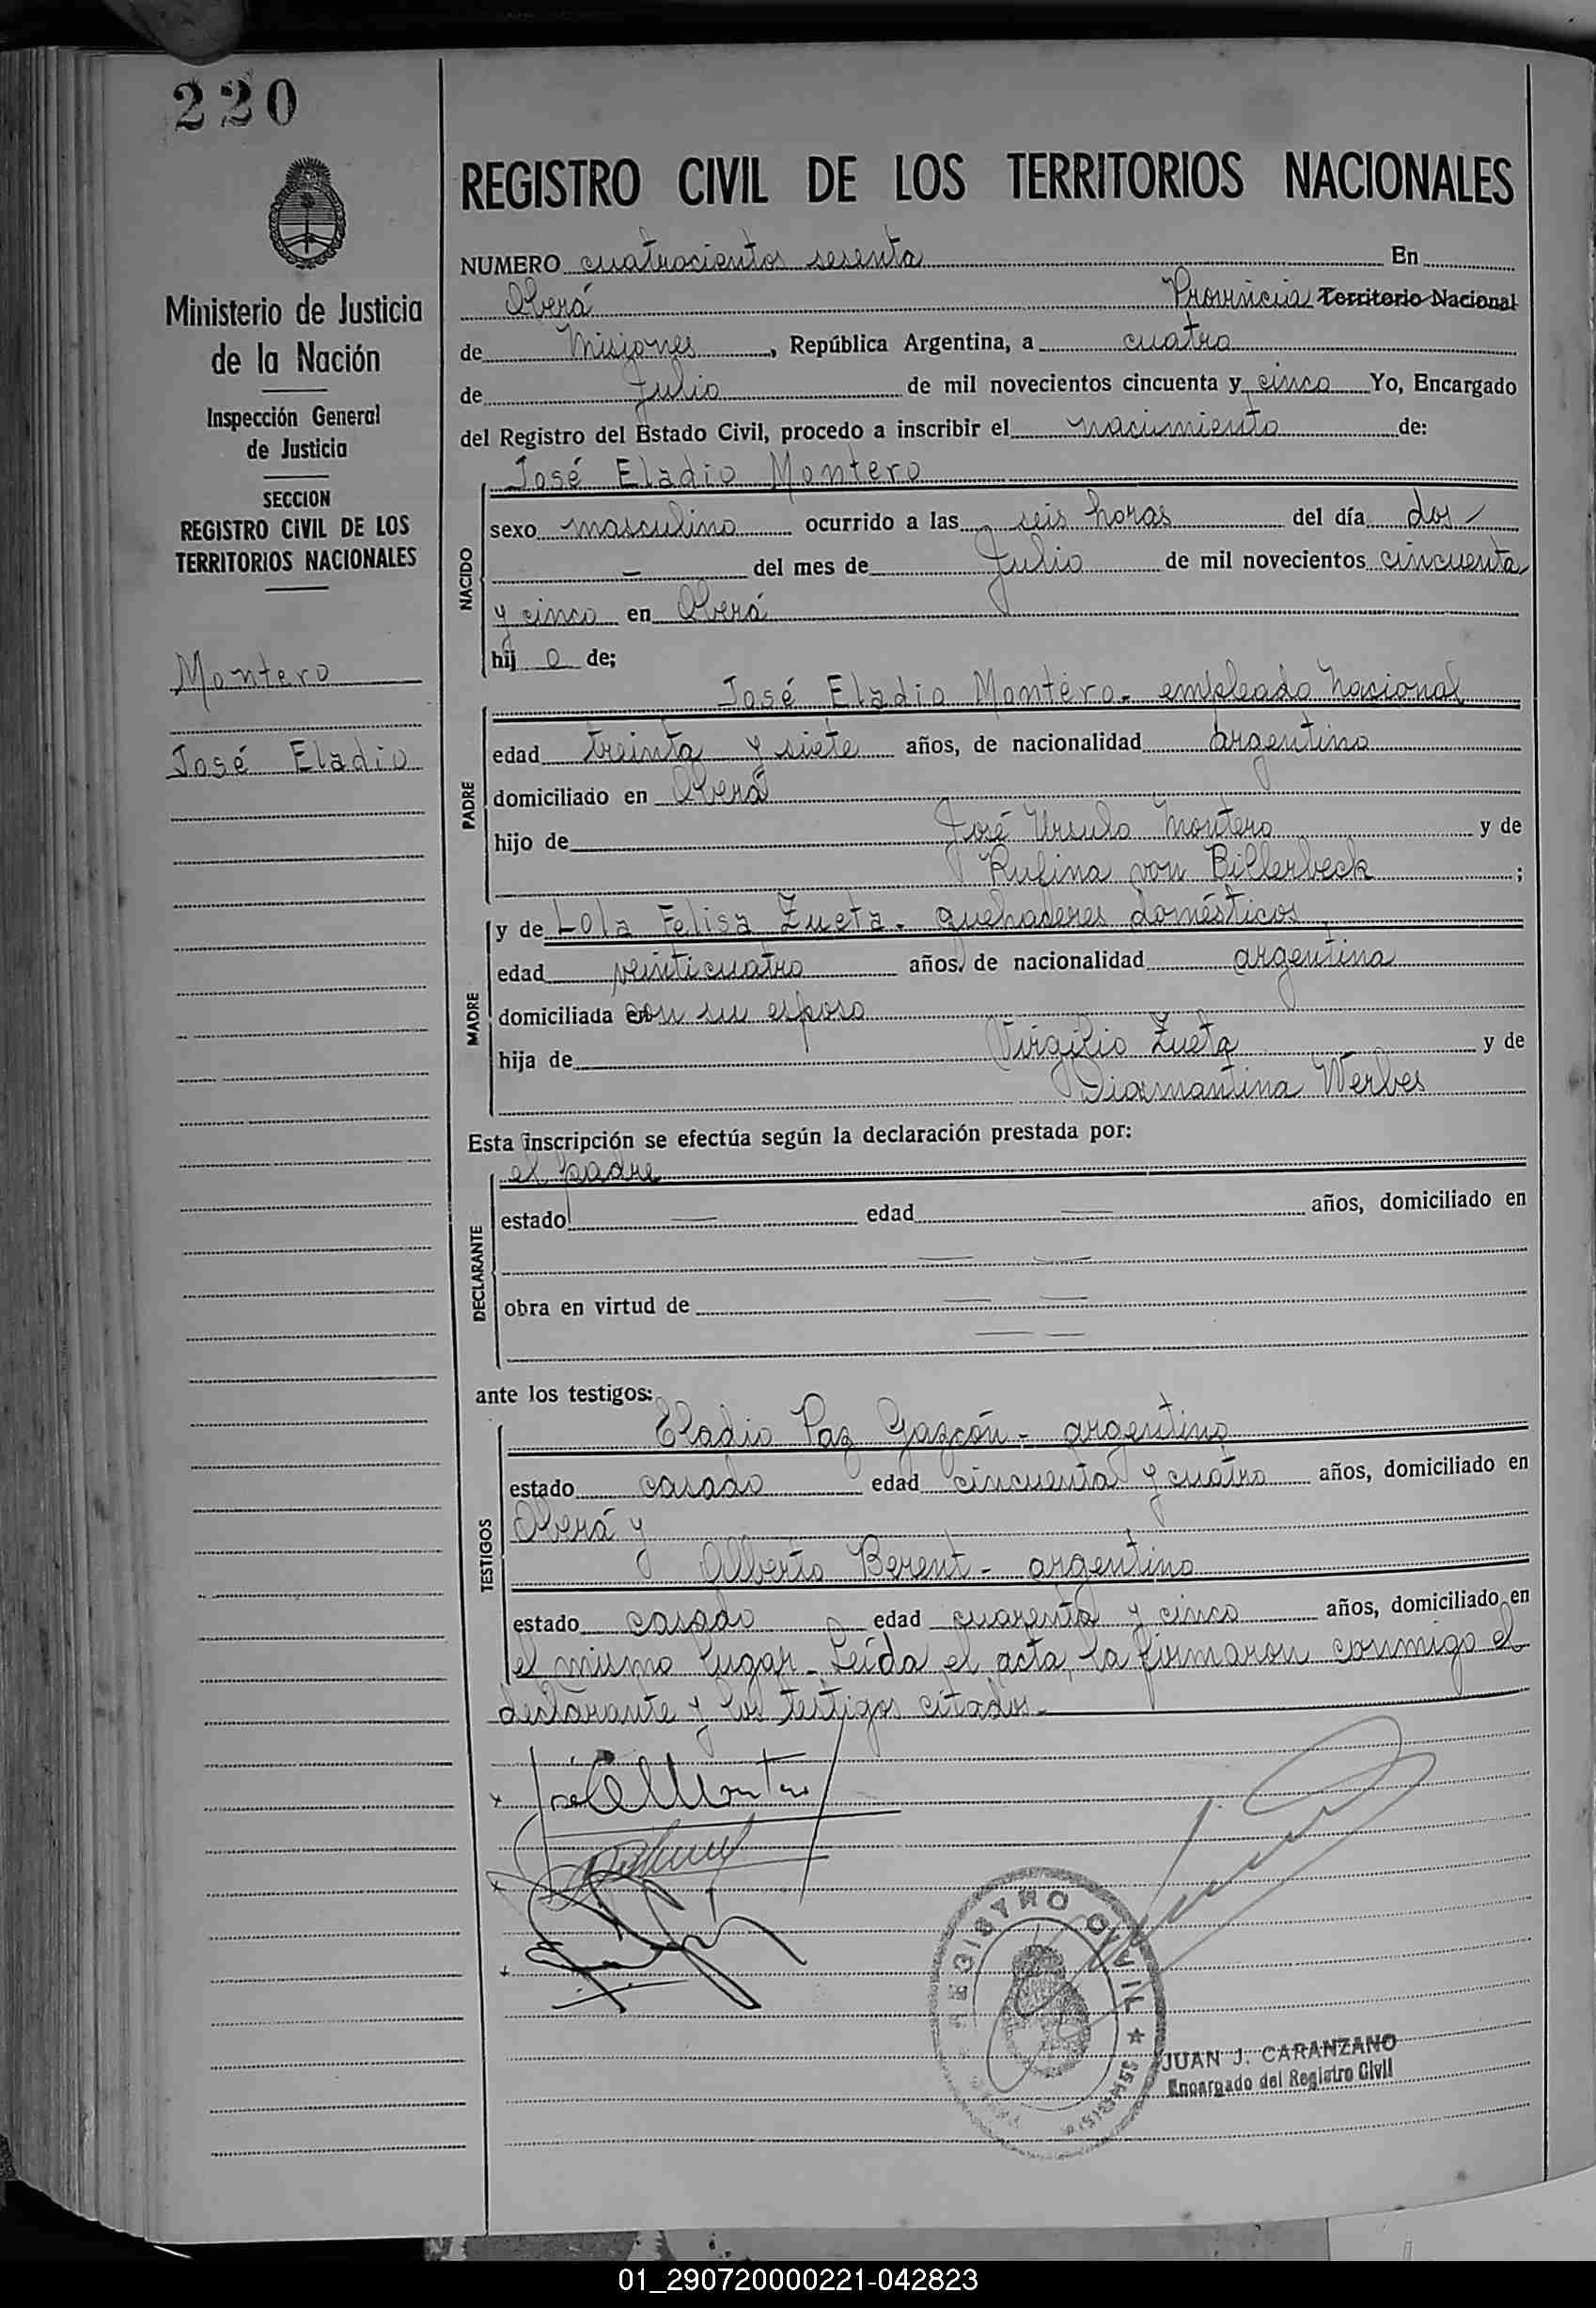 220
Ministerio de Justicia
de la Nación
Inspección General
de Justicia
SECCION
REGISTRO CIVIL DE LOS
TERRITORIOS NACIONALES
Montero
José Eladio
REGISTRO CIVIL DE LOS TERRITORIOS NACIONALES
NUMERO cuatrocientos sesenta En
Oberá Provincia Territorio Nacional
de Misiones, República Argentina, a cuatro
de Julio de mil novecientos cincuenta y cinco Yo, Encargado
del Registro del Estado Civil, procedo a inscribir el nacimiento de:
NACIDO
José Eladio Montero
sexo masculino ocurrido a las seis horas del día dos
— del mes de Julio de mil novecientos cincuenta
y cinco en Oberá
hij o de;
PADRE
José Eladio Montero - empleado nacional
edad treinta y siete años, de nacionalidad argentino
domiciliado en Oberá
hijo de José Ursulo Montero y de
Rufina von Billerbeck ;
MADRE
y de Lola Felisa Zueta - quehaceres domésticos
edad veinticuatro años, de nacionalidad argentina
domiciliada en con su esposo
hija de Virgilio Zueta y de
Diamantina Werbes
Esta inscripción se efectúa según la declaración prestada por:
DECLARANTE
el padre
estado — edad — años, domiciliado en
— —
obra en virtud de — —
— —
ante los testigos:
TESTIGOS
Eladio Paz Gazcón - argentino
estado casado edad cincuenta y cuatro años, domiciliado en
Oberá y
Alberto Berent - argentino
estado casado edad cuarenta y cinco años, domiciliado en
el mismo lugar - Leída el acta, la firmaron conmigo el
declarante y los testigos citados.-
José E Montero
REGISTRO CIVIL
MISIONES
JUAN J. CARANZANO
Encargado del Registro Civil
01_290720000221-042823